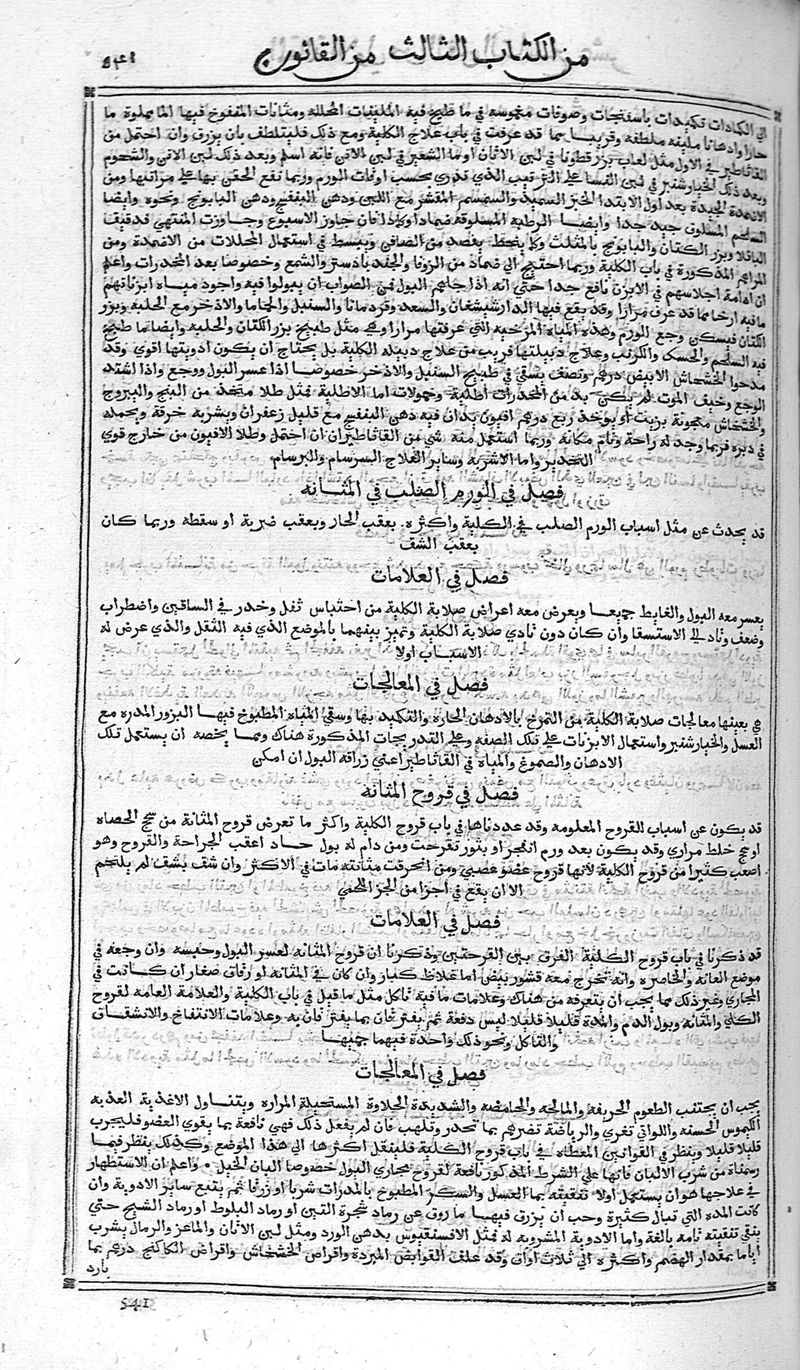 ٥٤١
من الكتاب الثالث من القانون
الي الكمادات تكميدات باسفنجات وصوفات مغموسه في ما طبخ فيه المليفات المحلله ومثانات المنفوخ فيها الما مملوة ما
حارا وادهانا مليفه ملطفه وقريبا مما قد عرفت في باب علاج الكلية ومع ذلك فليتلطف بان يزرق وان احتمل من
القاثاطير في الاول مثل لعاب بزرقطونا في لبن الاتان او ما الشعير في لبن الاتن فانه اسلم وبعد ذلك لبن الاتن والشحوم
وبعد ذلك الخيارشنبر في لبن النسا علي الترتيب الذي تدري بحسب اوقات الورم وربما نفع الحقن بها علي مراتبها ومن
الاضمدة الجيدة بعد اول الابتدا الخبز السميد والسمسم المقشر مع اللبن ودهن البنفسج ودهن البابونج ونحوه وايضا
السلجم المسلوق جيد جدا وايضا الرطبه المسلوقة ضمادا وكذا فان جاوز الاسبوع وجاوزت المنتهي فدقيق
الباقلا وبزر الكتان والبابونج بالمثلث وكما ينحط يفصد من الصافن ويبسط في استعمال المحللات من الاضمدة ومن
المراهم المذكورة في باب الكلية وربما احتيج الي ضماد من الزوفا والجندبادستر والشمع وخصوصا بعد المخدرات واعلم
ان ادامة اجلاسهم في الابزن نافع جدا حتي انه اذا جاهم البول فمن الصواب ان يبولوا فيه واجود مياه ابزناتهم
ما فيه ارخا مما قد عرف مرارا وقد يقع فيها الدارشيشعان والسعد وقردمانا والسنبل والحماما والاذخر مع الحلبه وبزر
الكتان فيسكن وجع الورم وهذه المياه المرخيه التي عرفتها مرارا وهي مثل طبيخ بزر الكتان والحلبه وايضا ما طبيخ
فيه السلجم والحسك والكرنب وعلاج دبيلتها قريب من علاج دبيله الكلية بل يحتاج ان يكون ادويتها اقوي وقد
مدحوا الخشخاش الابيض درهم ونصف يسقي في طبيخ السنبل والاذخر خصوصا اذا عسر البول ووجع واذا اشتد
الوجع وخيف الموت لم يكن بد من المخدرات اطلية وحمولات اما الاطلية فمثل طلا متخذ من البنج واليبروج
والخشخاش معجونة بزيت او يوخذ ربع درهم افيون يداف في دهن البنفسج مع قليل زعفران ويشربه خرقة ويحمله
في دبره فربما وجد له راحة ونام مكانه وربما استعمل منه شي من القاثاطير ان احتمل وطلا الافيون من خارج قوي
التخدير واما الاشربة وساير العلاج السرسام والبرسام
فصل في الورم الصلب في المثانه
قد يحدث عن مثل اسباب الورم الصلب في الكلية واكثره يعقب الحار ويعقب ضربة او سقطه وربما كان
يعقب الشق
فصل في العلامات
يعسر معه البول والغايط جميعا ويعرض معه اعراض صلابة الكلية من احتباس ثفل وخدر في الساقين واضطراب
وضعف وتاد الي الاستسقا وان كان دون تادي صلابة الكلية وتميز بينهما بالموضع الذي فيه الثقل والذي عرض له
الاسباب اولا
فصل في المعالجات
هي بعينها معالجات صلابة الكلية من التمرخ بالادهان الحارة والتكميد بها وسقي المياه المطبوخ فيها البزور المدره مع
العسل والخيارشنبر واستعمال الابزنات علي تلك الصفه وعلي التدريجات المذكورة هناك ومما يخصه ان يستعمل تلك
الادهان والصموغ والمياه في القاثاطير اعني زراقه البول ان امكن
فصل في قروح المثانه
قد يكون عن اسباب للقروح المعلومه وقد عددناها في باب قروح الكلية واكثر ما تعرض قروح المثانة من سحج الحصاه
او سحج خلط مراري وقد يكون بعد ورم انفجر او بثور تقرحت ومن دام له بول حاد اعقب الجراحة والقروح وهو
اصعب كثيرا من قروح الكلية لانها قروح عضو عصبي ومن انخرقت مثانته مات في الاكثر وان شق بشق لم يلتحم
الا ان يقع في اجزا من الجز اللحمي
فصل في العلامات
قد ذكرنا في باب قروح الكلية الفرق بين القرحتين وذكرنا ان قروح المثانه لعسر البول وحبسه وان وجعه في
موضع العانه والخاصره وانه تخرج معه قشور بيض اما غلاظ كبار وان كان في المثانه او رقاق صغار ان كانت في
المجاري وغير ذلك مما يجب ان يتعرفه من هناك وعلامات ما فيه تاكل مثل ما قيل في باب الكلية والعلامة العامه لقروح
الكلي والمثانه وبول الدم والمدة قليلا قليلا ليس دفعة ثم يفتر فان بما يفتر فان به وعلامات الانتفاخ والانشقاق
والتاكل ونحو ذلك واحدة فيهما جميعا
فصل في المعالجات
يجب ان يجتنب الطعوم الحريفه والمالحه والحامضه والشديدة الحلاوة المستحيلة المراره ويتناول الاغذية العذبه
الكيموس الحسنه واللواتي تغري والرياضة تضرهم بما تحدر وتلهب فان لم يفعل ذلك فهي نافعة بما يقوي العضو فليجرب
قليلا قليلا وينظر في القوانين المعطاه في باب قروح الكلية فلينقل اكثرها الي هذا الموضع وكذلك ينظر فيما
رسمناه من شرب الالبان فانها علي الشرط المذكور نافعة لقروح مجاري البول خصوصا البان الخيل واعلم ان الاستظهار
في علاجها هو ان يستعمل اولا تنقيته بما العسل والسكر المطبوخ بالمدرات شربا او زرقا ثم يتبع ساير الادوية وان
كانت المده التي تبال كثيرة وجب ان يزرق فيها ما روق عن رماد شجرة التين او رماد البلوط او رماد الشيح حتي
ينقي تنقيته تامه بالغة واما الادوية المشروبه له فمثل الافسنقيوس بدهن الورد ومثل لبن الاتان والماعز والرمال يشرب
اياما بمقدار الهضم واكثره الي ثلاث اواق وقد علف القوابض المبردة واقراص الخشخاش واقراص الكاكنج درهم بما
بارد
541